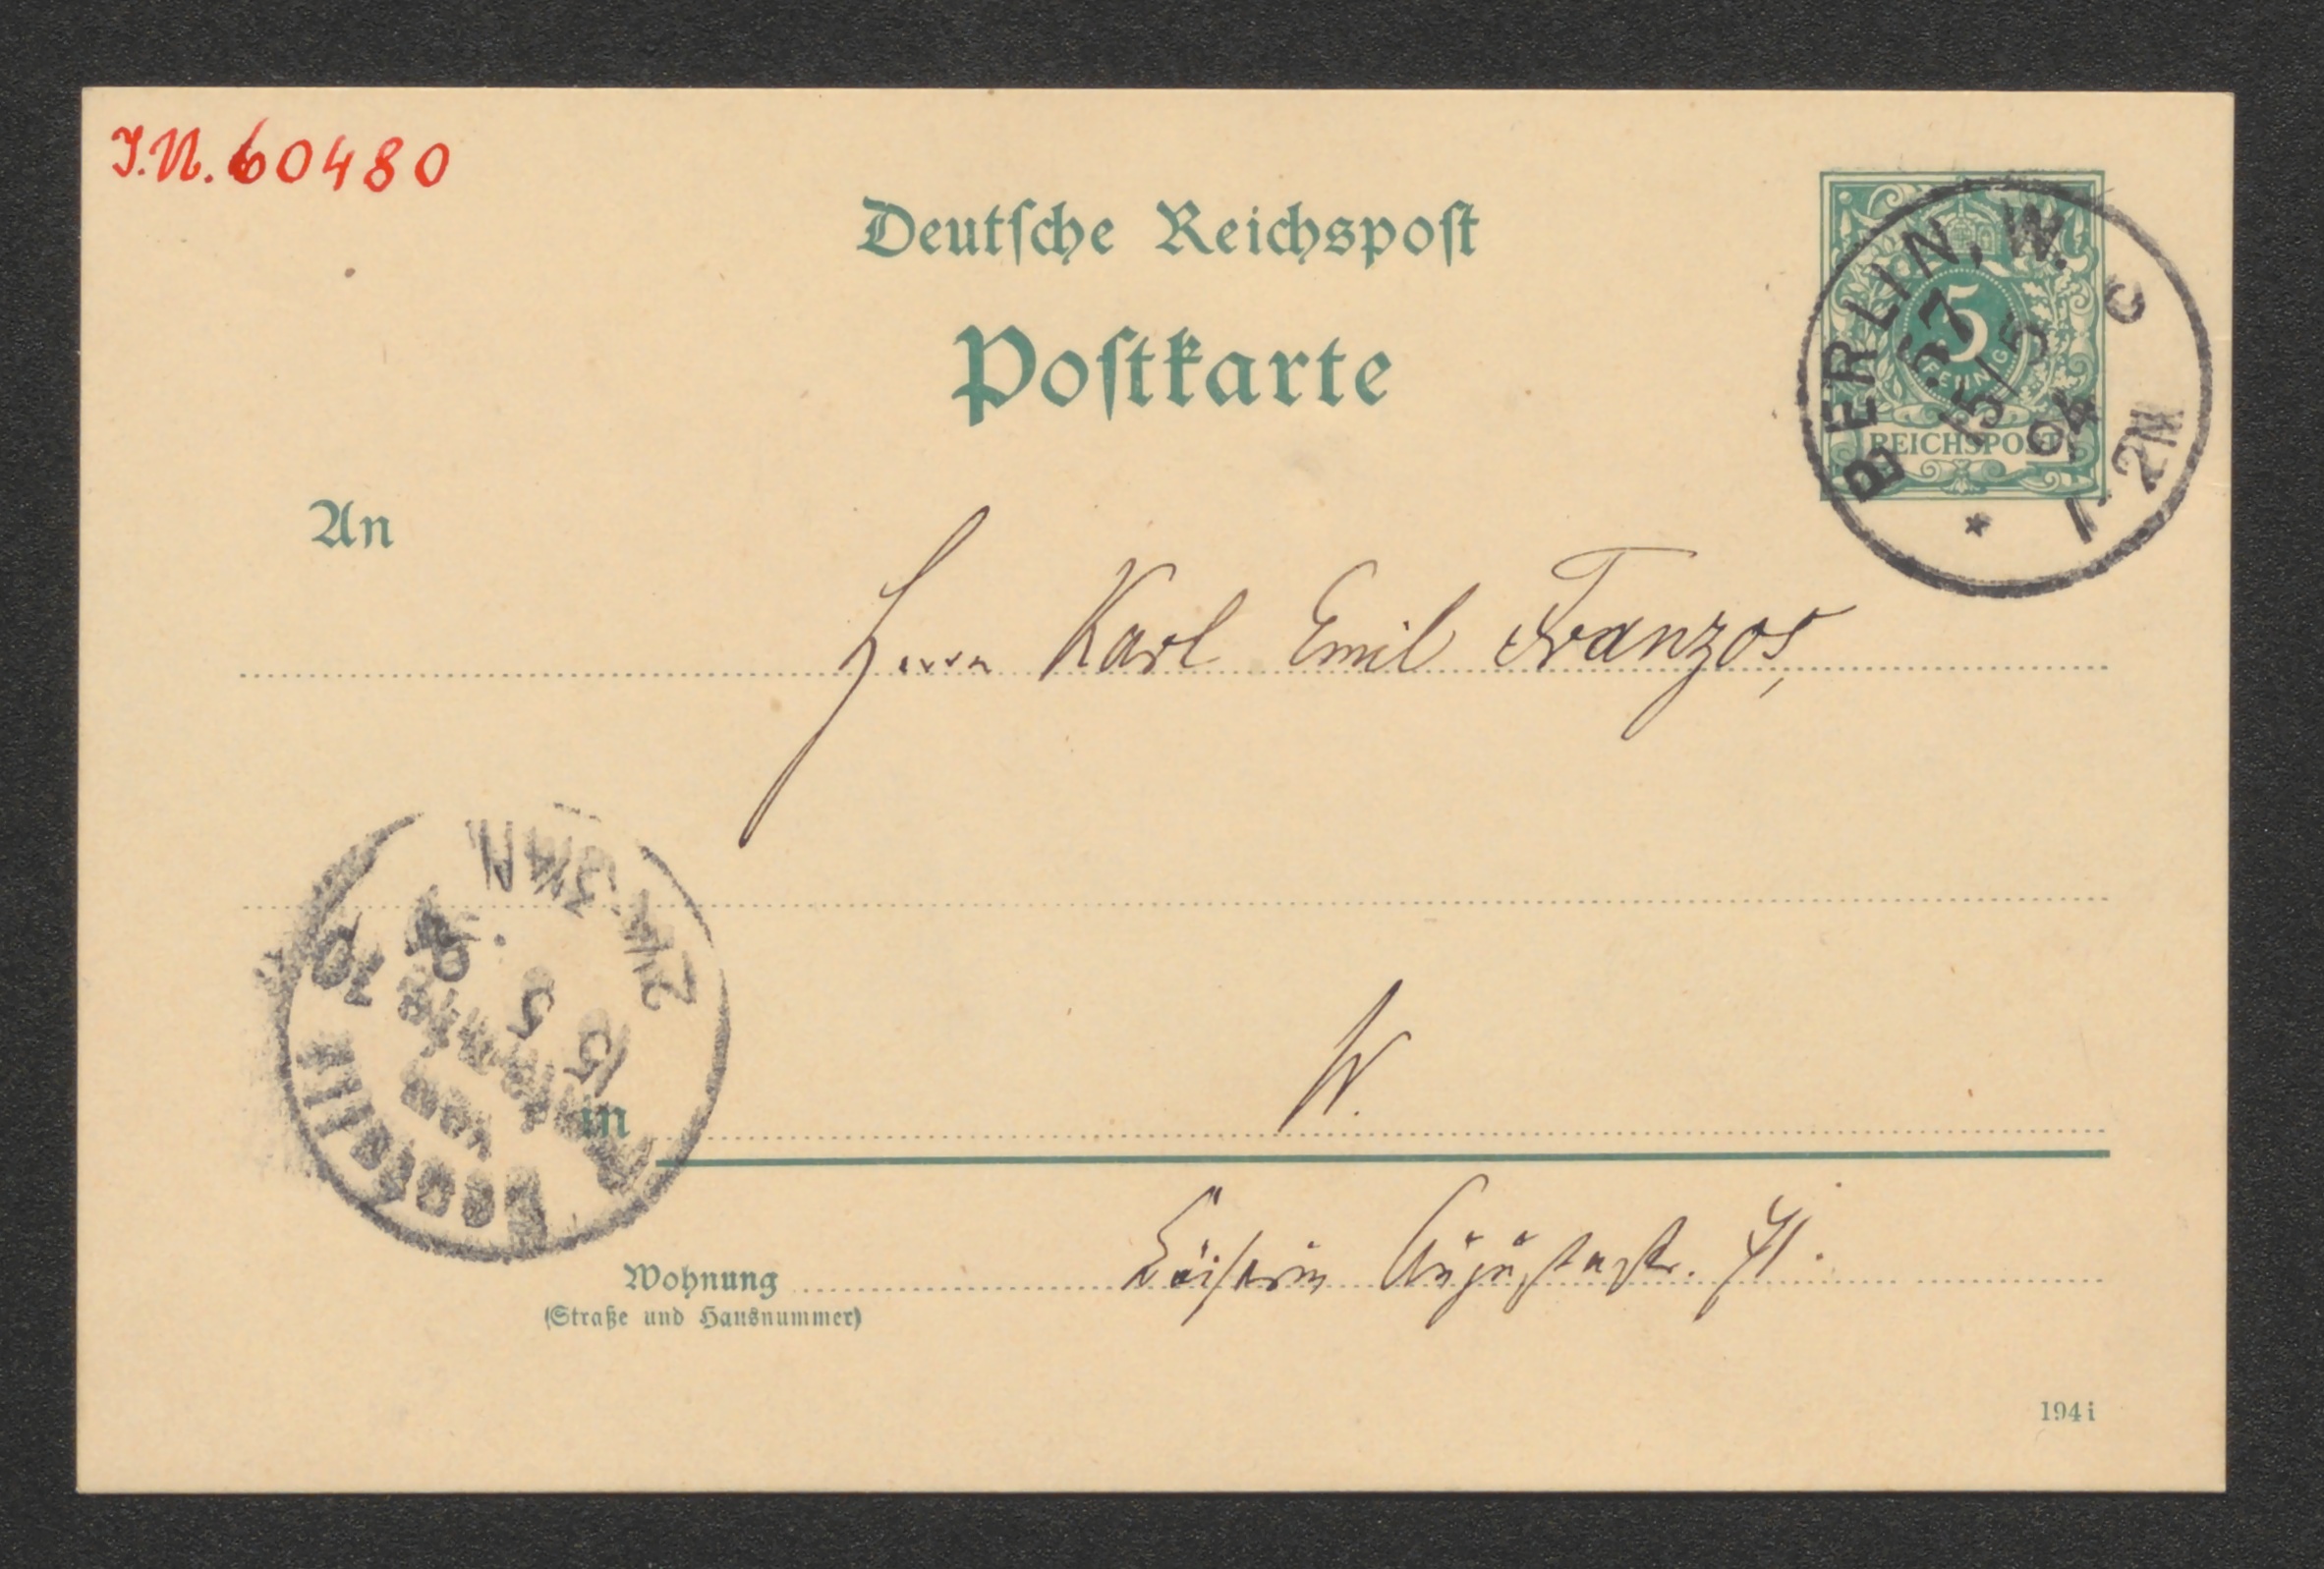 I.N. 60480
Deutsche Reichspost
Postkarte
5
PFENNIG
REICHSPOST
BERLIN, W.
57
15/5
94
1-2N
c
An
Herrn Karl Emil Franzos,
in W.
Wohnung Kaiserin Augustastr. 71.
(Straße und Hausnummer)
Bestellt
vom
Postamte
15 5
94
2¼-3¾N
194i